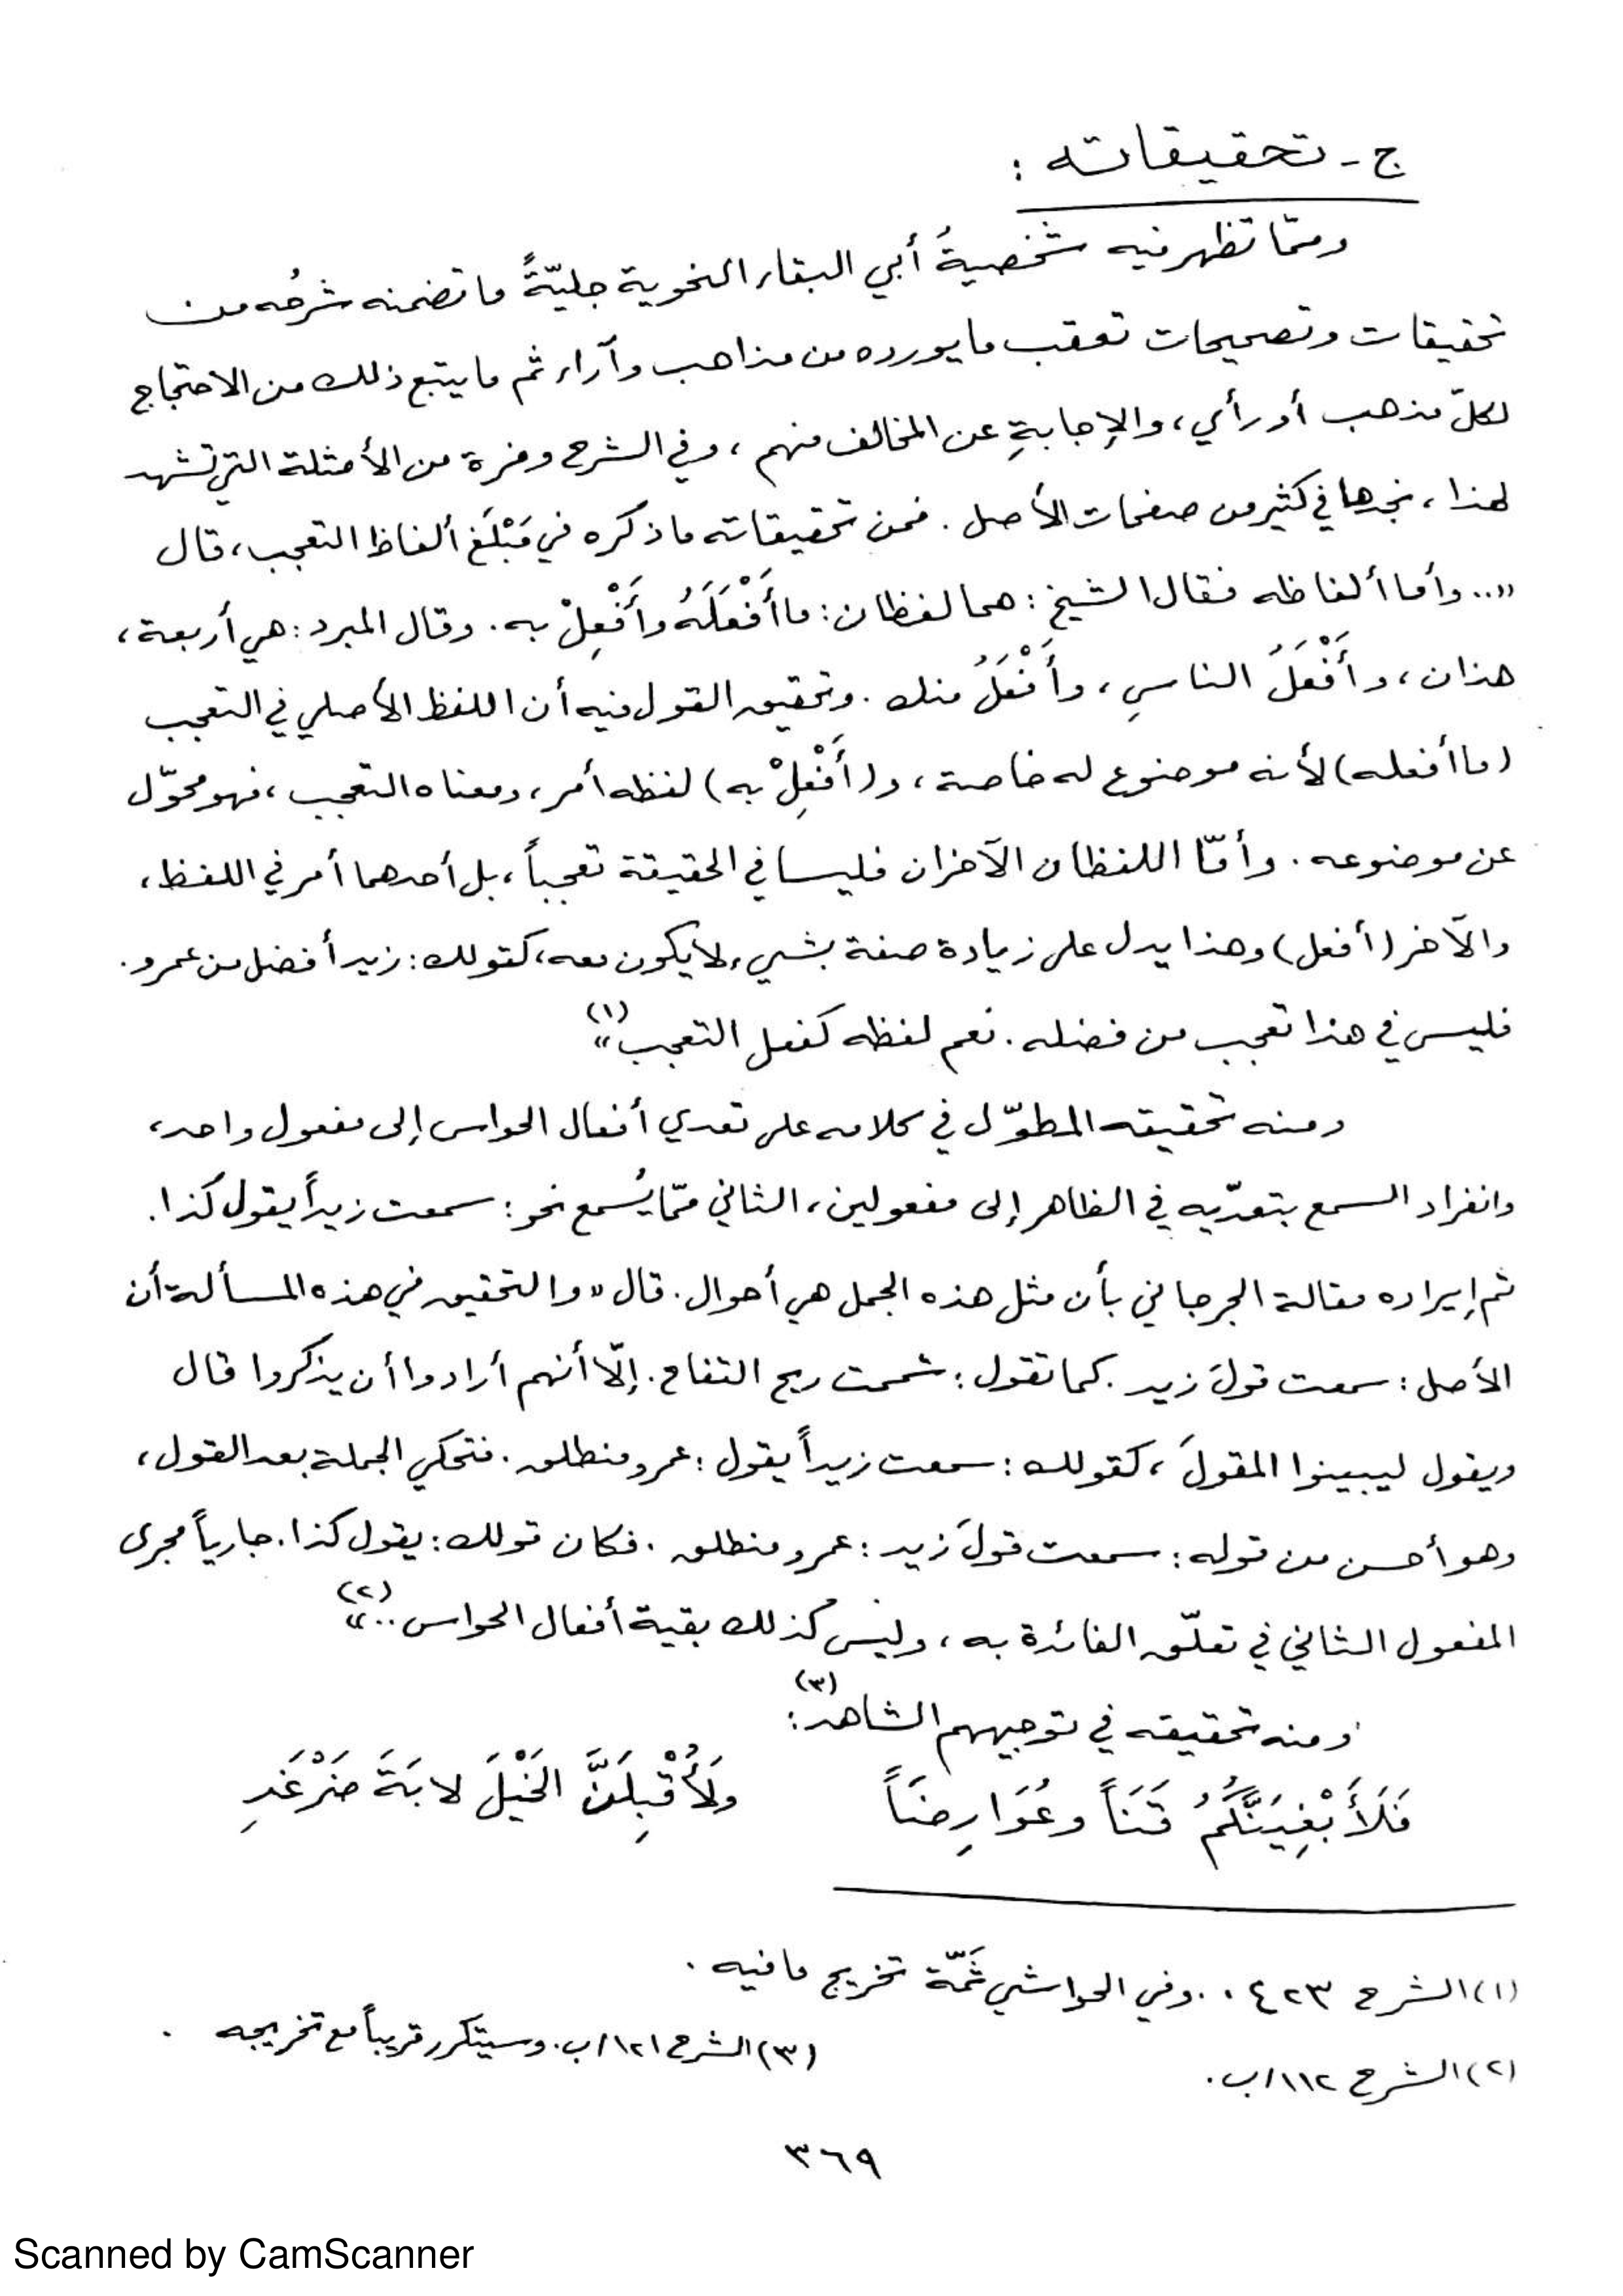 ج - تحقيقاته :
وممّا تظهر فيه شخصيةُ أبي البقاء النحوية جليّةً ما تضمنه شرحُه من
تحقيقات وتصحيحات تعقب ما يورده من مذاهب وآراء ثم ما يتبع ذلك من الاحتجاج
لكلّ مذهب أو رأي، والإجابةِ عن المخالف منهم، وفي الشرح وفرة من الأمثلة التي تشهد
لهذا، نجدها في كثير من صفحات الأصل. فمن تحقيقاته ما ذكره في مَبْلَغ ألفاظ التعجب، قال
«.. وأما ألفاظه فقال الشيخ : هما لفظان : ما أَفْعَلَهُ وأَفْعِلْ به. وقال المبرد : هي أربعة،
هذان، وأَفْعَلُ الناسِ، وأَفْعَلُ منك. وتحقيق القول فيه أن اللفظ الأصلي في التعجب
(ما أفعله) لأنه موضوع له خاصة، و(أَفْعِلْ به) لفظه أمر، ومعناه التعجب، فهو محوّل
عن موضوعه. وأمّا اللفظان الآخران فليسا في الحقيقة تعجباً، بل أحدهما أمر في اللفظ،
والآخر (أفعل) وهذا يدل على زيادة صفة بشيء لا يكون معه، كقولك : زيد أفضل من عمرو.
فليس في هذا تعجب من فضله. نعم لفظه كفعل التعجب»(١)
ومنه تحقيقه المطوّل في كلامه على تعدي أفعال الحواس إلى مفعول واحد،
وانفراد السمع بتعدّيه في الظاهر إلى مفعولين، الثاني ممّا يُسمع نحو : سمعت زيداً يقول كذا.
ثم إيراده مقالة الجرجاني بأن مثل هذه الجمل هي أحوال. قال «والتحقيق في هذه المسألة أن
الأصل : سمعت قولَ زيد. كما تقول : شممت ريح التفاح. إلّا أنهم أرادوا أن يذكروا قال
ويقول ليبينوا المقولَ، كقولك : سمعت زيداً يقول : عمرو منطلق. فتحكي الجملة بعد القول،
وهو أحسن من قوله : سمعت قولَ زيد : عمرو منطلق. فكان قولك : يقول كذا. جارياً مجرى
المفعول الثاني في تعلّق الفائدة به، وليس كذلك بقية أفعال الحواس..»(٢)
ومنه تحقيقه في توجيههم الشاهد(٣) :
فَلَأَبْغِيَنَّكُمُ قَنَاً وعُوَارِضَاً ولَأُقْبِلَنَّ الخَيْلَ لابَةَ ضَرْغَدِ
(١) الشرح ٤٢٣ .. وفي الحواشي ثَمّة تخريج ما فيه .
(٢) الشرح ١١٢/ب. (٣) الشرح ١٢١/ب. وسيتكرر قريباً مع تخريجه .
٣٦٩
Scanned by CamScanner